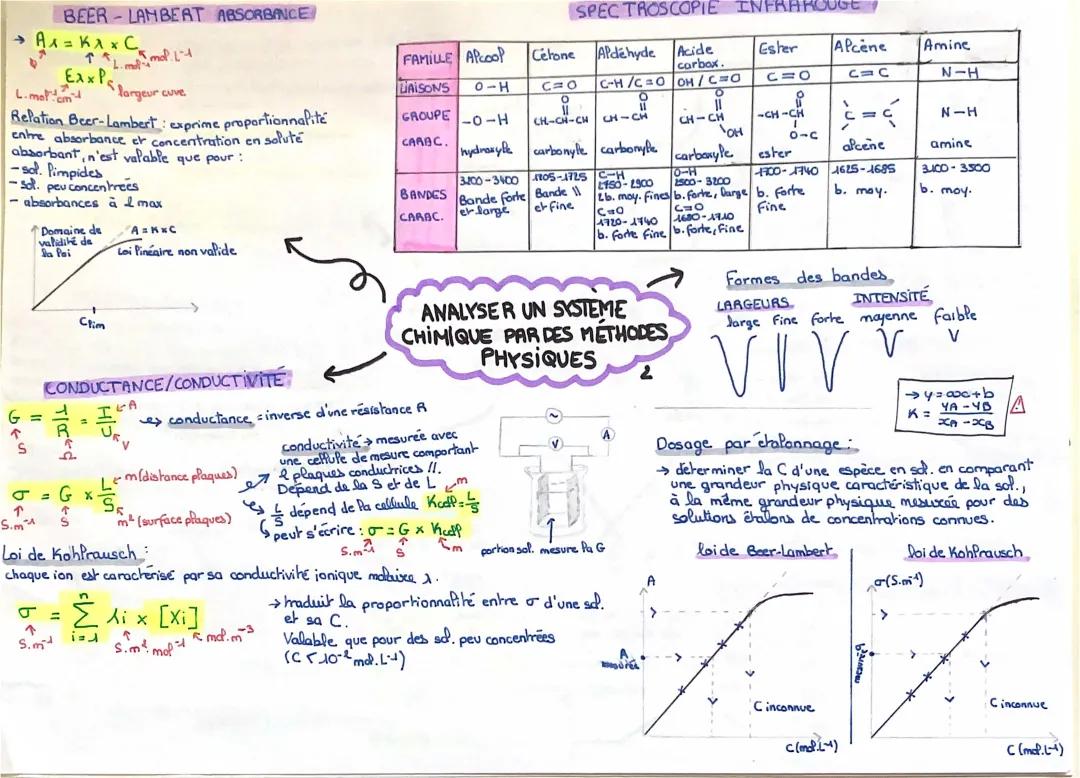 BEER - LAMBERT ABSORBANCE
→ Aλ = Kλ x C
L.mol⁻¹ mol.L⁻¹
Ελ x P
L.mol⁻¹.cm⁻¹ largeur cuve
Relation Beer-Lambert : exprime proportionnalité
entre absorbance et concentration en soluté
absorbant, n'est valable que pour :
- sol. limpides
- sol. peu concentrées
- absorbances à λ max
Domaine de
validité de
la loi
A = K x C
Loi linéaire non valide
Clim
SPECTROSCOPIE INFRAROUGE
FAMILLE Alcool Cétone Aldéhyde Acide carbox. Ester Alcène Amine
LIAISONS O-H C=O C-H/C=O OH/C=O C=O C=C N-H
GROUPE CARAC.
-O-H
hydroxyle
O
CH-CH-CH
carbonyle
O
CH-CH
carbonyle
O
CH-CH
OH
carboxyle
O
-CH-CH
O-C
ester
C=C
alcène
N-H
amine
BANDES CARAC.
3200-3400
Bande forte
et large
1705-1725
Bande ||
et fine
C-H
2750-2900
2b. moy. fines
C=O
1720-1740
b. forte fine
O-H
2500-3200
b. forte, large
C=O
1680-1710
b. forte, fine
1700-1740
b. forte
fine
1625-1685
b. moy.
3100-3500
b. moy.
ANALYSER UN SYSTÈME
CHIMIQUE PAR DES MÉTHODES
PHYSIQUES
2
Formes des bandes
LARGEURS INTENSITÉ
large fine forte moyenne faible
→ y = ax + b
K = yA - yB
xA - xB
CONDUCTANCE/CONDUCTIVITÉ
G = 1/R = I/U
A
S Ω V
conductance = inverse d'une résistance R
σ = G x L/S
m (distance plaques)
S.m⁻¹ S m² (surface plaques)
conductivité → mesurée avec
une cellule de mesure comportant
2 plaques conductrices //.
Dépend de la S et de L
L/S dépend de la cellule Kcell = L/S
m
peut s'écrire : σ = G x Kcell
S.m⁻¹ S m
V
A
portion sol. mesure la G
Loi de Kohlrausch :
chaque ion est caractérisé par sa conductivité ionique molaire λ.
n
σ = Σ λi x [Xi]
i=1
S.m⁻¹ S.m².mol⁻¹ mol.m⁻³
→ traduit la proportionnalité entre σ d'une sol.
et sa C.
Valable que pour des sol. peu concentrées
(C < 10⁻² mol.L⁻¹)
Dosage par étalonnage :
→ déterminer la C d'une espèce en sol. en comparant
une grandeur physique caractéristique de la sol.,
à la même grandeur physique mesurée pour des
solutions étalons de concentrations connues.
Loi de Beer-Lambert
A
A
mesurée
C inconnue
C(mol.L⁻¹)
Loi de Kohlrausch
σ(S.m⁻¹)
σ mesurée
C inconnue
C (mol.L⁻¹)